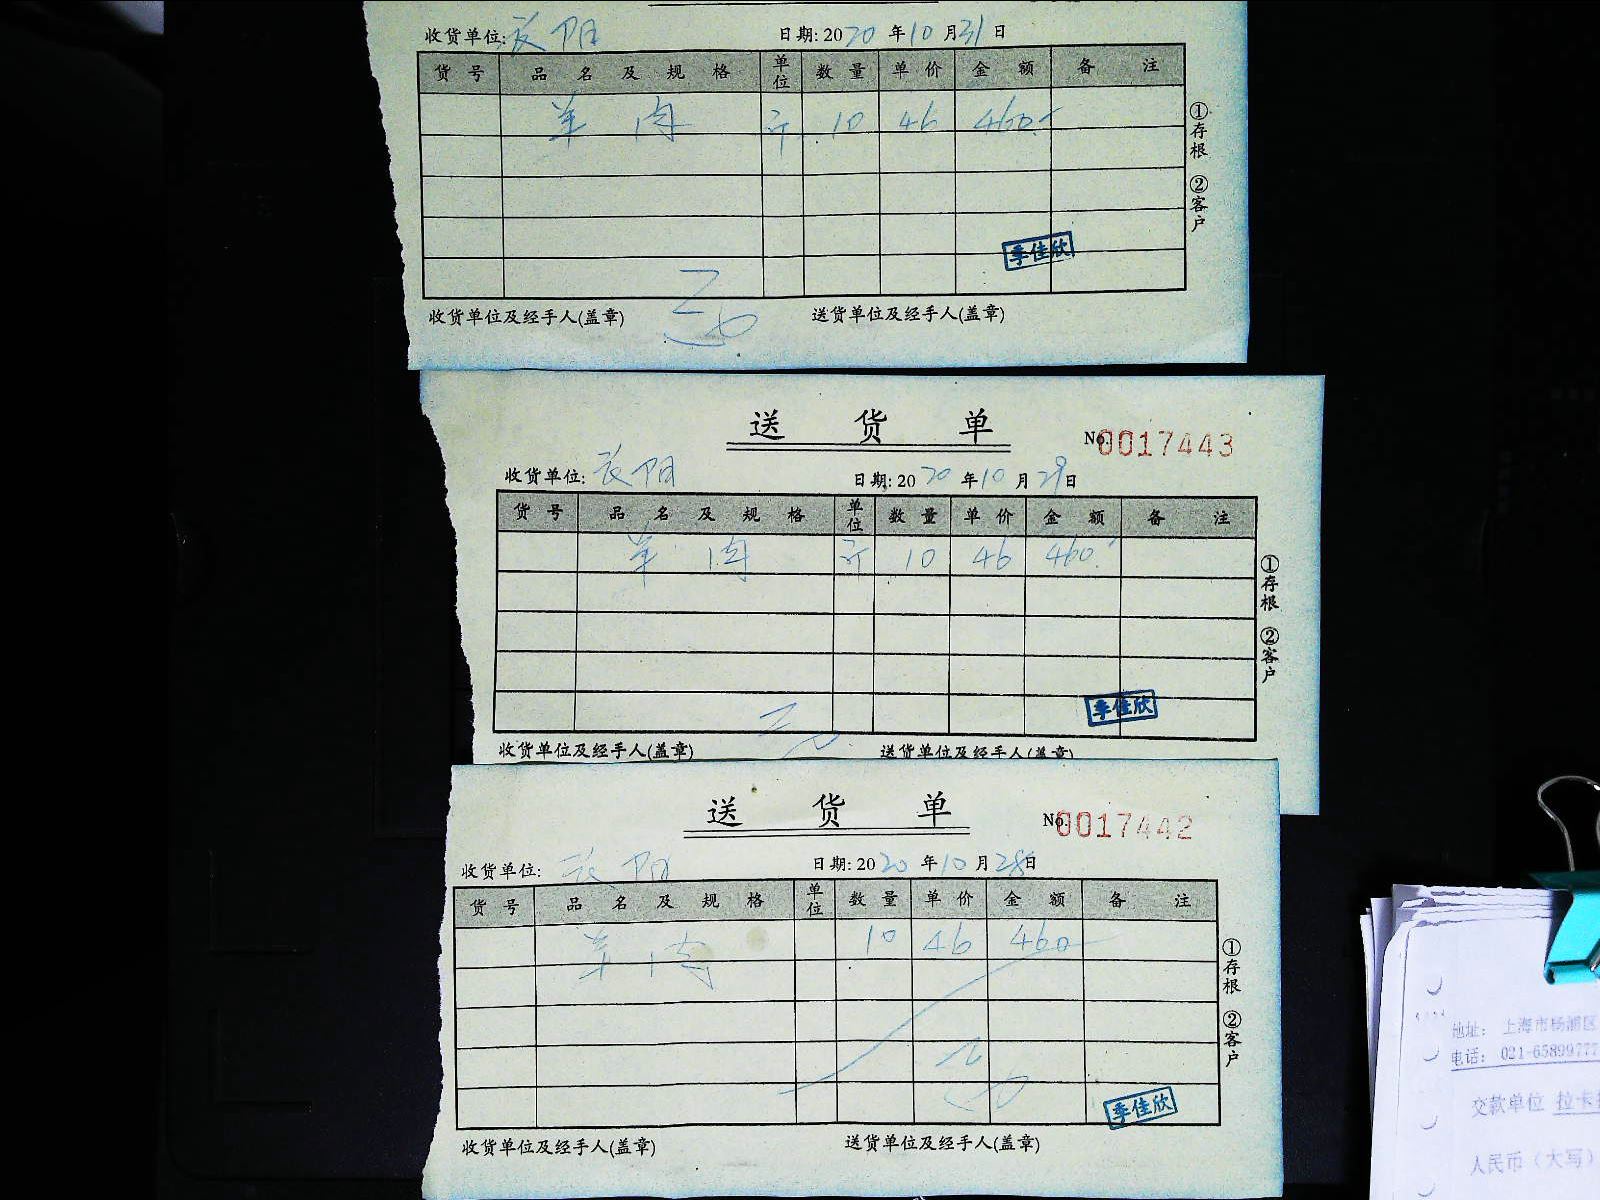 收货单位: 长阳 日期: 2020年10月31日
货号 品名及规格 单位 数量 单价 金额 备注
羊肉 斤 10 46 460
①存根 ②客户
季佳欣
收货单位及经手人(盖章) 送货单位及经手人(盖章)
送货单 No.0017443
收货单位: 长阳 日期: 2020年10月29日
货号 品名及规格 单位 数量 单价 金额 备注
羊肉 斤 10 46 460
①存根 ②客户
季佳欣
收货单位及经手人(盖章) 送货单位及经手人(盖章)
送货单 No.0017442
收货单位: 长阳 日期: 2020年10月28日
货号 品名及规格 单位 数量 单价 金额 备注
羊肉 10 46 460
①存根 ②客户
季佳欣
收货单位及经手人(盖章) 送货单位及经手人(盖章)
地址: 上海市杨浦区
电话: 021-65899777
交款单位 拉卡
人民币(大写)